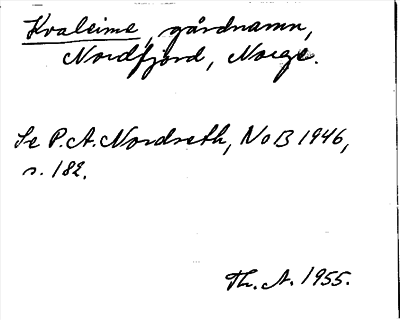 Kvaleime, gårdnamn,
Nordfjord, Norge.
Se P.A. Nordseth, NoB 1946,
s. 182.
Th. A. 1955.